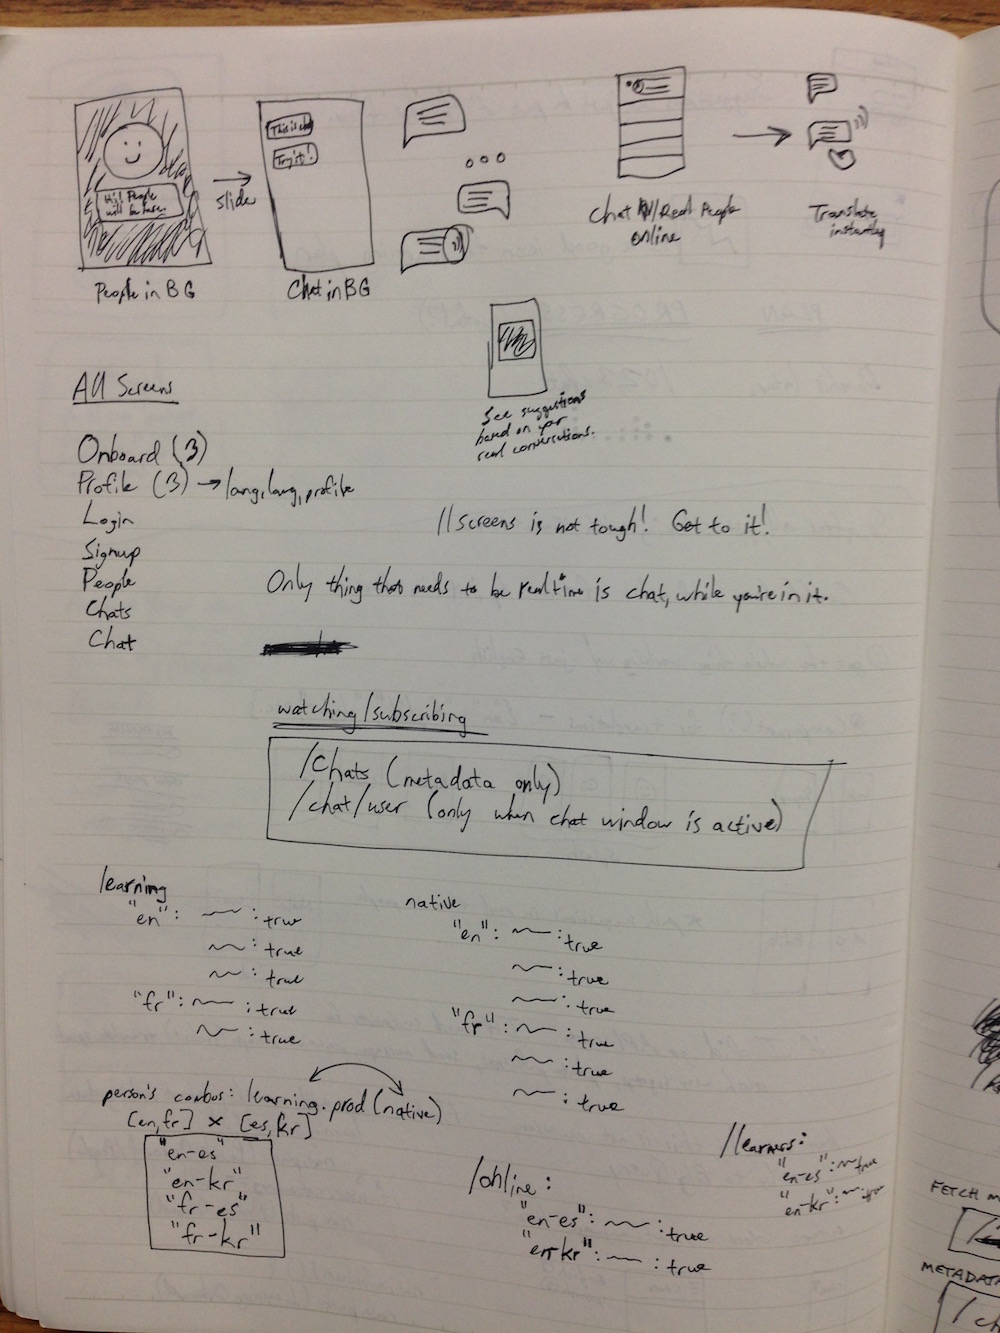 Hi! People
will be here.
This is chat
Try it!
slide
People in BG
Chat in BG
Chat w/ Real People
online
Translate
instantly
See suggestions
based on your
real conversations.
All Screens
Onboard (3)
Profile (3) → lang, lang, profile
Login
Signup
People
Chats
Chat
11 screens is not tough! Get to it!
Only thing that needs to be realtime is chat, while you're in it.
watching/subscribing
/chats (metadata only)
/chat/user (only when chat window is active)
learning
"en": : true
: true
: true
"fr": : true
: true
native
"en": : true
: true
: true
"fr": : true
: true
: true
person's combos: learning.prod(native)
[en, fr] × [es, kr]
"en-es"
"en-kr"
"fr-es"
"fr-kr"
/online:
"en-es": : true
"en-kr": : true
/learners:
"en-es": : true
"en-kr": : true
FETCH
METADATA